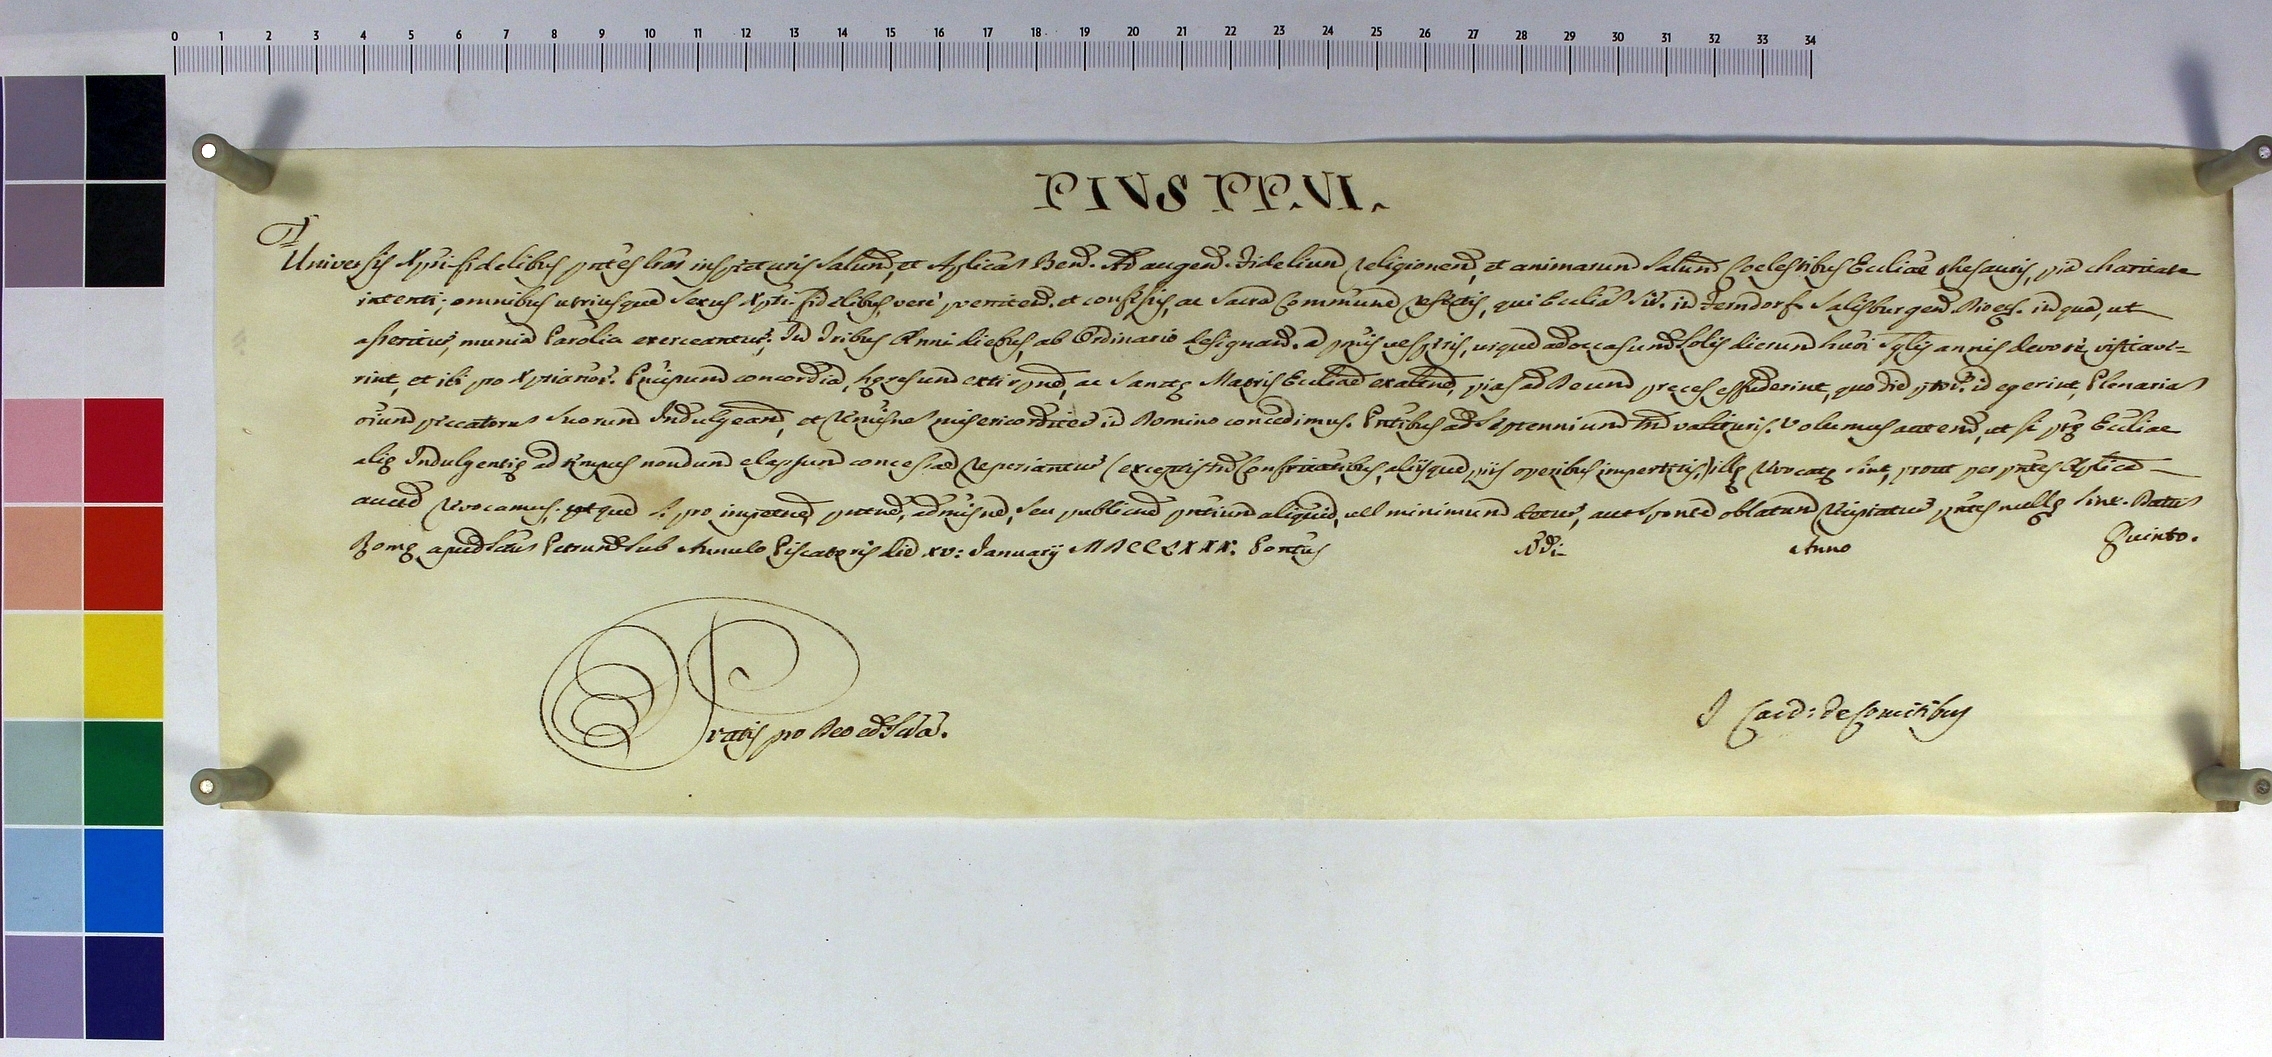 0 1 2 3 4 5 6 7 8 9 10 11 12 13 14 15 16 17 18 19 20 21 22 23 24 25 26 27 28 29 30 31 32 33 34
PIVS PP. VI.
Universis Xpri fidelibus pntes lras inspecturis Salutem, et Aplicam Bened. Ad augend. Fidelium Religionem, et animarum Salutem Coelestibus Eccliae Thesauris, pia charitate
intenti; omnibus utriusque Sexus Xpri fidelibus, vere penitend. et confessis, ac Sacra Commune refectis, qui Eccliam in Ferndorf Salisburgen. Dioec. in qua, ut
asseritur, munia Parolia exerceantur, In Tribus Anni diebus, ab Ordinario designand. a pmis vesperis, usque ad occasum Solis dierum huoi Sglis annis devote visitave=
rint, et ibi pro Xprianor. Ppum concordia, hgresum extirpne, ac Sanctg Matris Eccliae exaltne, pias ad Deum preces effuderint, quo die id egerint, Plenariam
oium peccatorum Suorum Indulgeam, et misericorditer in Domino concedimus. Pntibus ad Septennium tm valituris. Volumus autem, ut si Eccliae
alig Indulgentig ad tempus nondum elapsum concessae reperiantur (exceptis Confritatibus, aliisque piis operibus impertitis,) illg revocatg sint, prout per pntes Aplica
aucte revocamus; utque si pro impetne, pntne, admisne, seu publicne pntium aliquid, vel minimum detur, aut sponte oblatum recipiatur pntes nullg sint. Datum
Romg apud Stum Petrum Sub Annulo Piscatoris die xv: Januarij MDCCLXXX. Pontus Nri Anno Quinto.
Gratis pro Deo et Scta.
I Card: de Comitibus